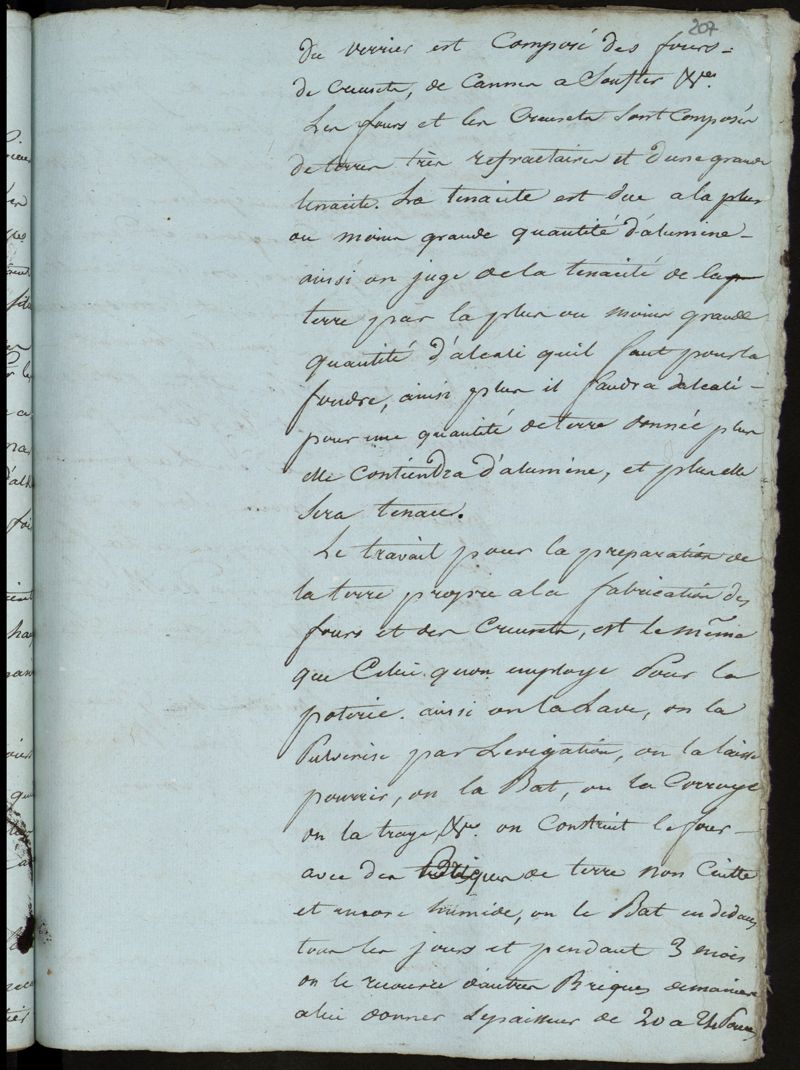 207
du verrier est Composé des fours-
de Creusets, de Cannes a Soufler &c.
Les fours et les Creusets sont Composés
de terres très refractaires et d'une grande
tenacite. La tenacite est due a la plus
ou moins grande quantité d'alumine-
ainsi on juge de la tenacité de la
terre par la plus ou moins grande
quantité d'alcali quil faut pour la
fondre, ainsi plus il faudra d'alcali-
pour une quantité de terre donnée plus
elle contiendra d'alumine, et plus elle
sera tenace.
Le travail pour la preparation de
la terre propre a la fabrication des
fours et des Creusets, est le même
que Celui quon employe Pour la
poterie. ainsi on la Lave, on la
Pulverise par Levigation, on la laisse
pourrir, on la Bat, on la Corroye
on la traye, &c. on Construit le four-
avec des Briques de terre non Cuitte
et encore humide, on le Bat en dedans
tous les jours et pendant 3 mois
on le recouvre d'autres Briques de maniere
a lui donner l'epaisseur de 20 a 24 Pouces